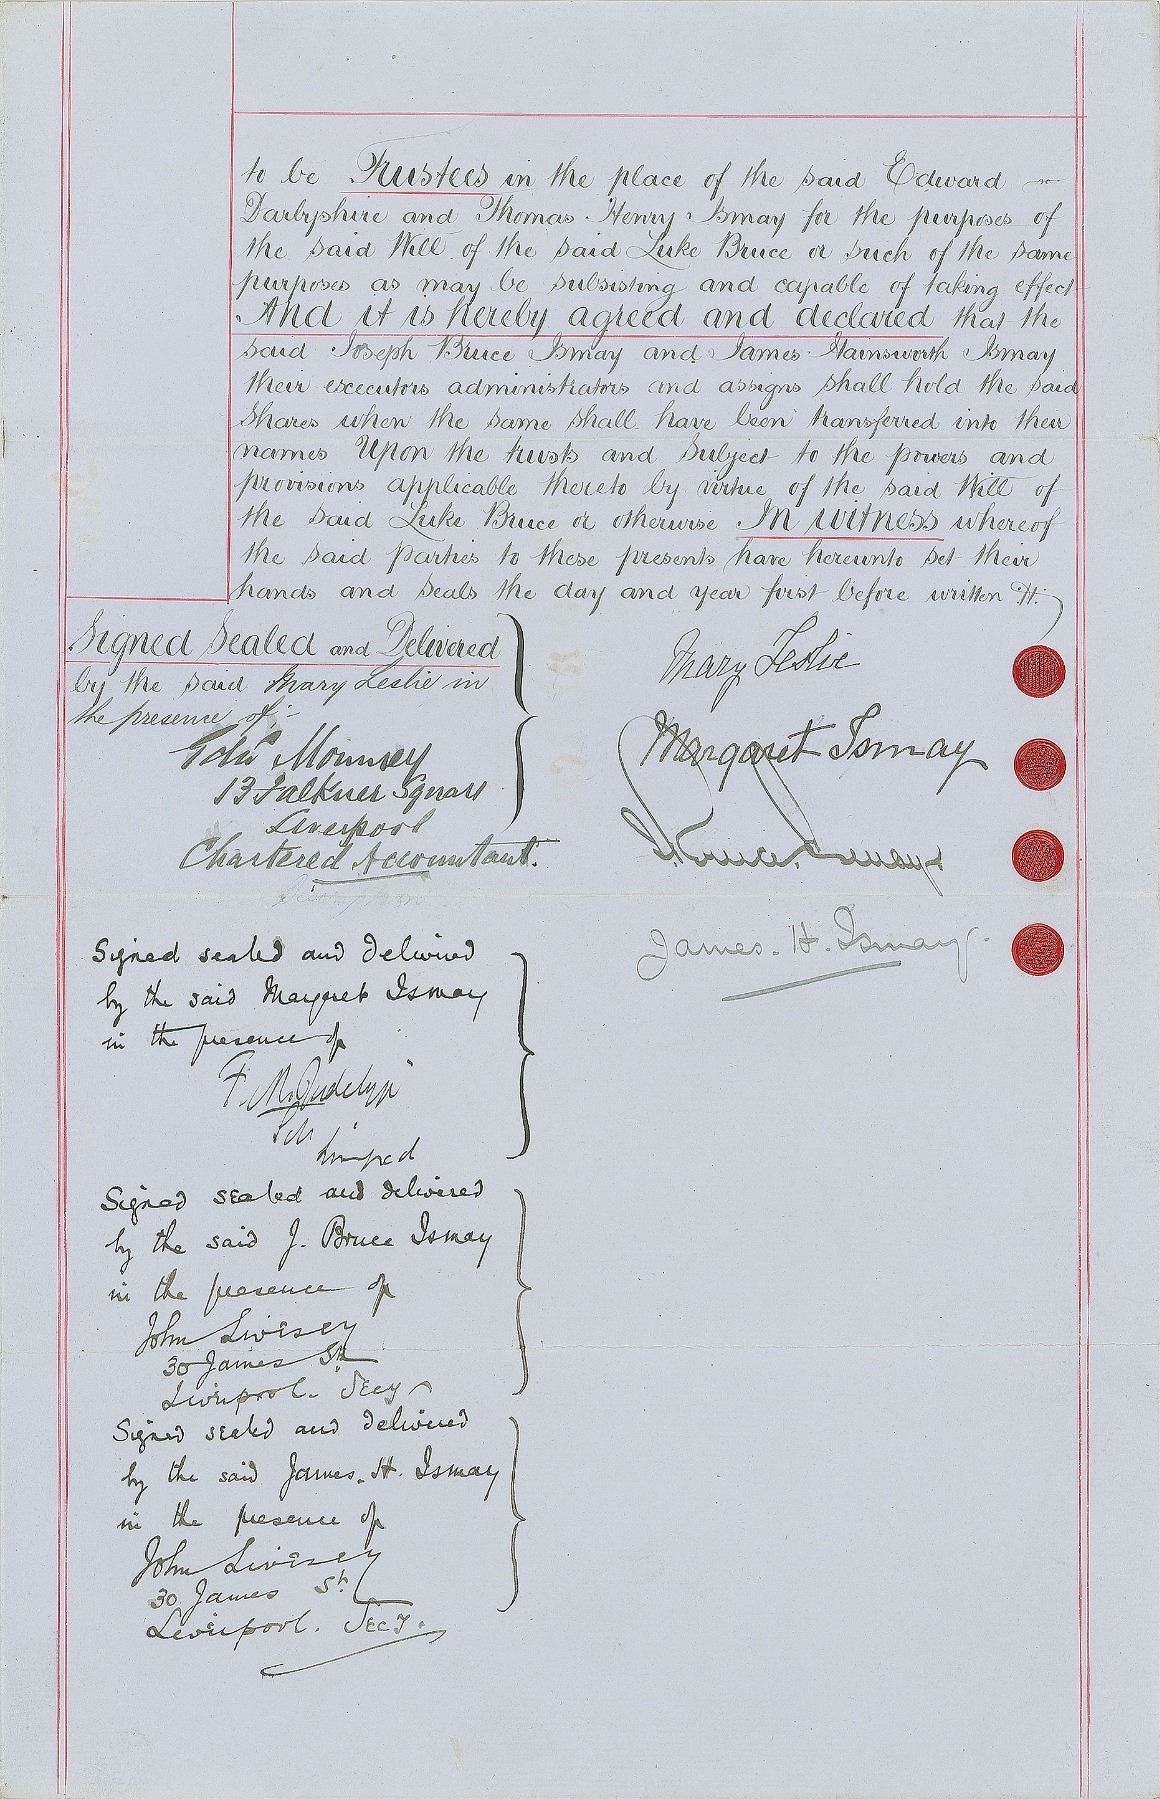 to be Trustees in the place of the said Edward
Darbyshire and Thomas Henry Ismay for the purposes of
the said Will of the said Luke Bruce or such of the same
purposes as may be subsisting and capable of taking effect
And it is hereby agreed and declared that the
said Joseph Bruce Ismay and James Hainsworth Ismay
their executors administrators and assigns shall hold the said
shares when the same shall have been transferred into their
names Upon the trusts and subject to the powers and
provisions applicable thereto by virtue of the said Will of
the said Luke Bruce or otherwise In witness whereof
the said parties to these presents have hereunto set their
hands and seals the day and year first before written
Signed Sealed and Delivered
by the said Mary Leslie in
the presence of:-
Mounsey
13 Falkner Square
Liverpool
Chartered Accountant.
Mary Leslie
Margaret Ismay
J Bruce Ismay
James. H. Ismay.
Signed sealed and delivered
by the said Margaret Ismay
in the presence of
Signed sealed and delivered
by the said J. Bruce Ismay
in the presence of
John Livesey
30 James St
Liverpool. Secy
Signed sealed and delivered
by the said James. H. Ismay
in the presence of
John Livesey
30 James St
Liverpool. Secy.